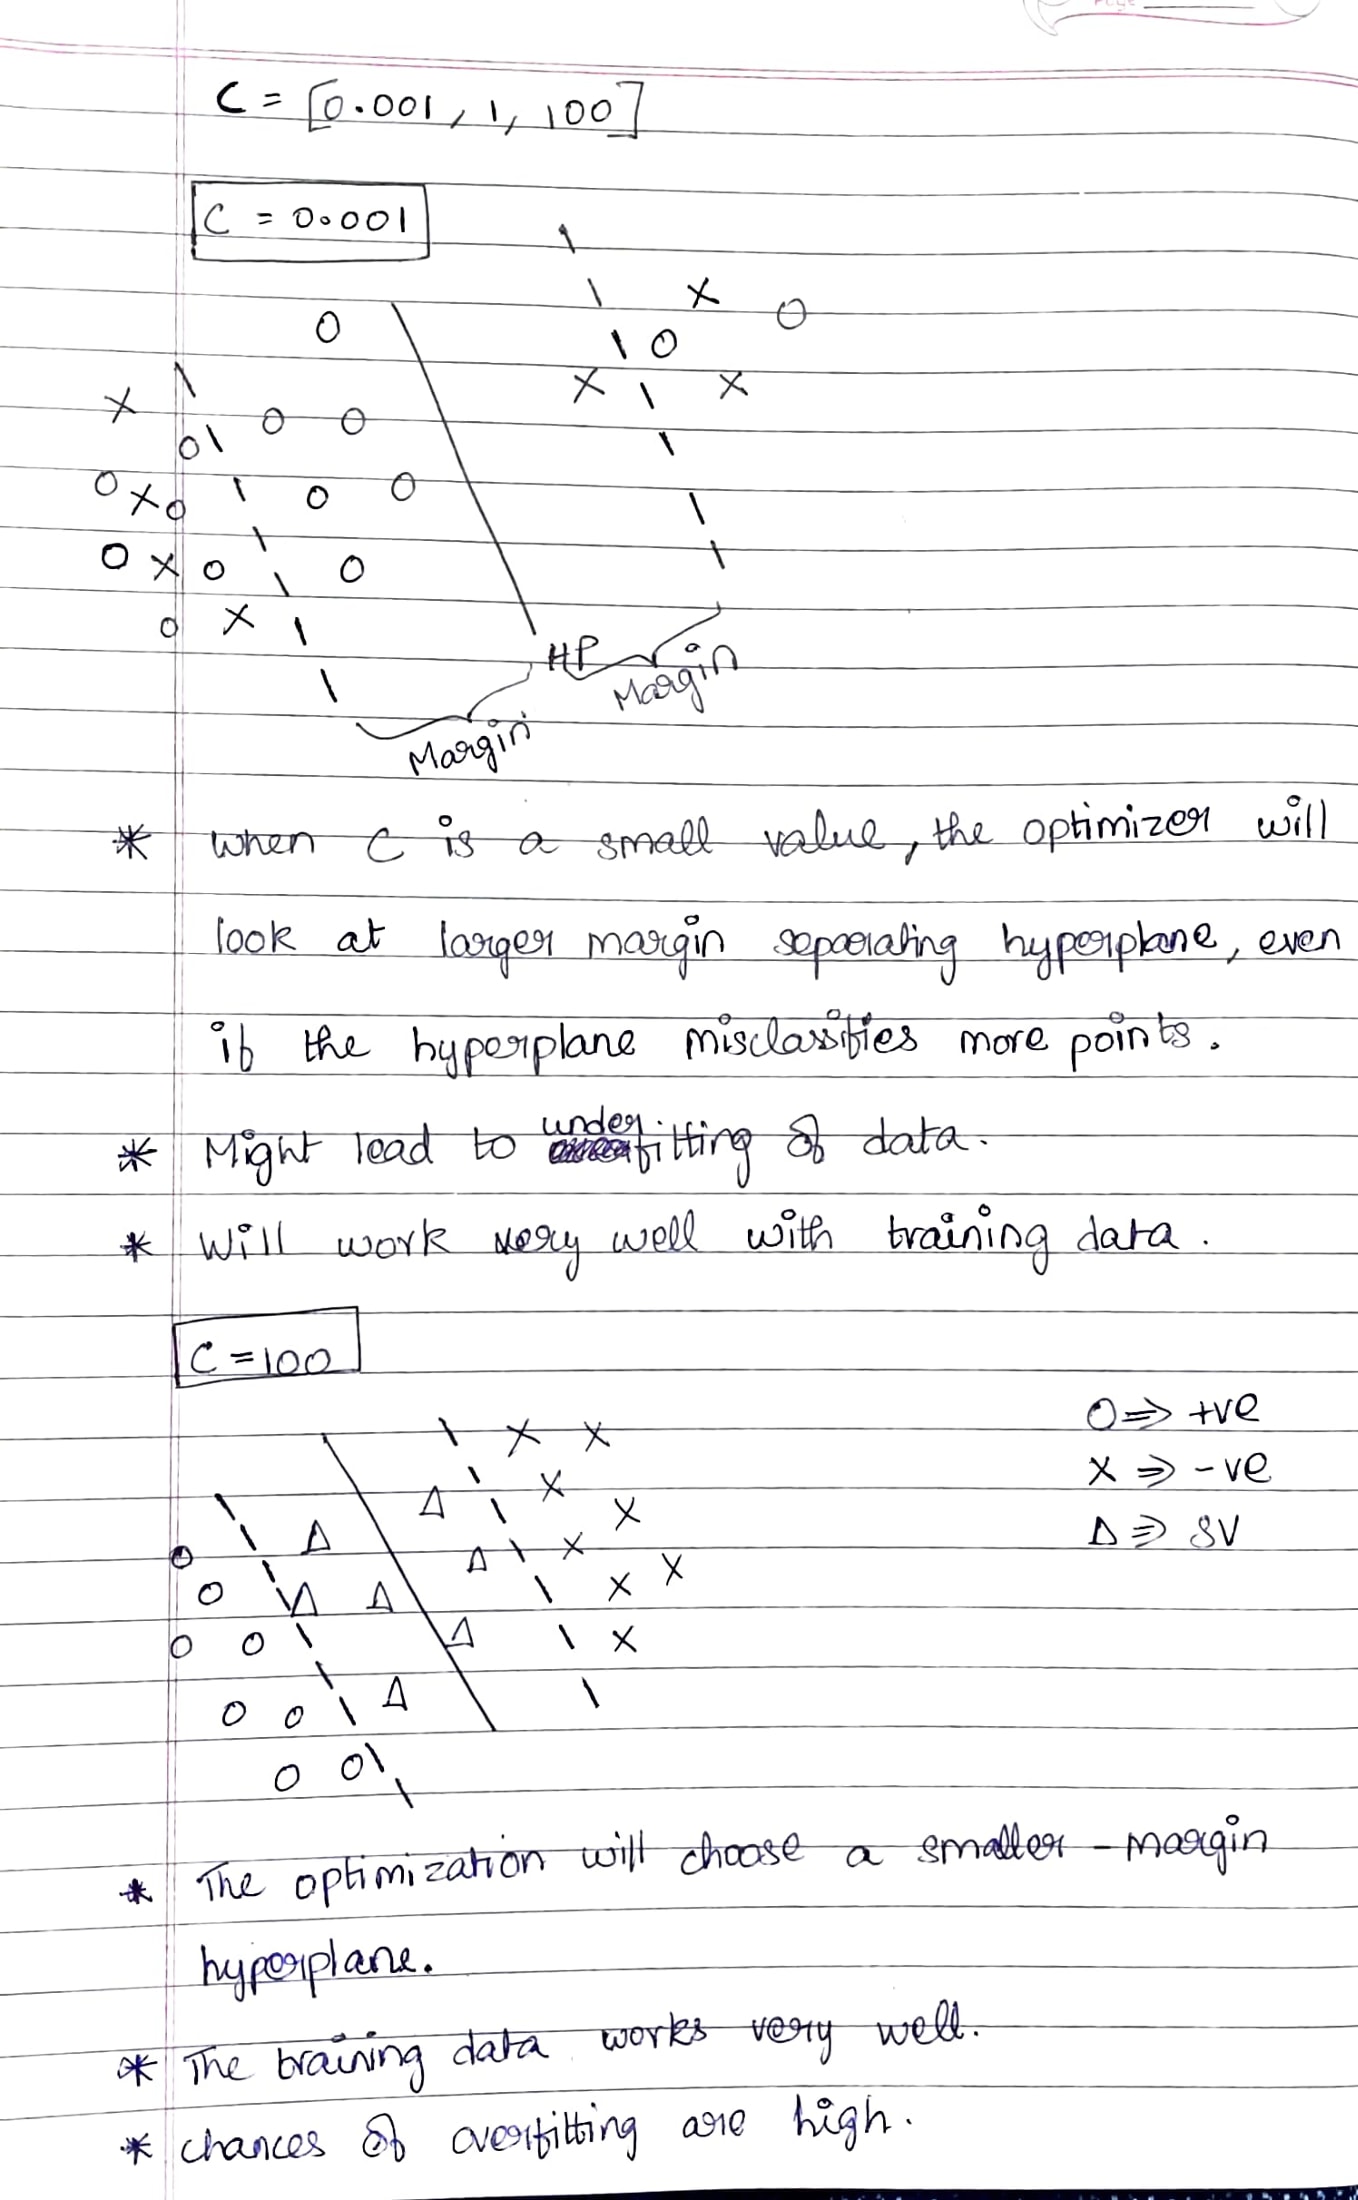 C = [0.001, 1, 100]
C = 0.001
HP
Margin
Margin
* when C is a small value, the optimizer will
look at larger margin separating hyperplane, even
if the hyperplane misclassifies more points.
* Might lead to underfitting of data.
* Will work very well with training data.
C = 100
O ⇒ +ve
X ⇒ -ve
Δ ⇒ SV
* The optimization will choose a smaller - margin
hyperplane.
* The training data works very well.
* chances of overfitting are high.